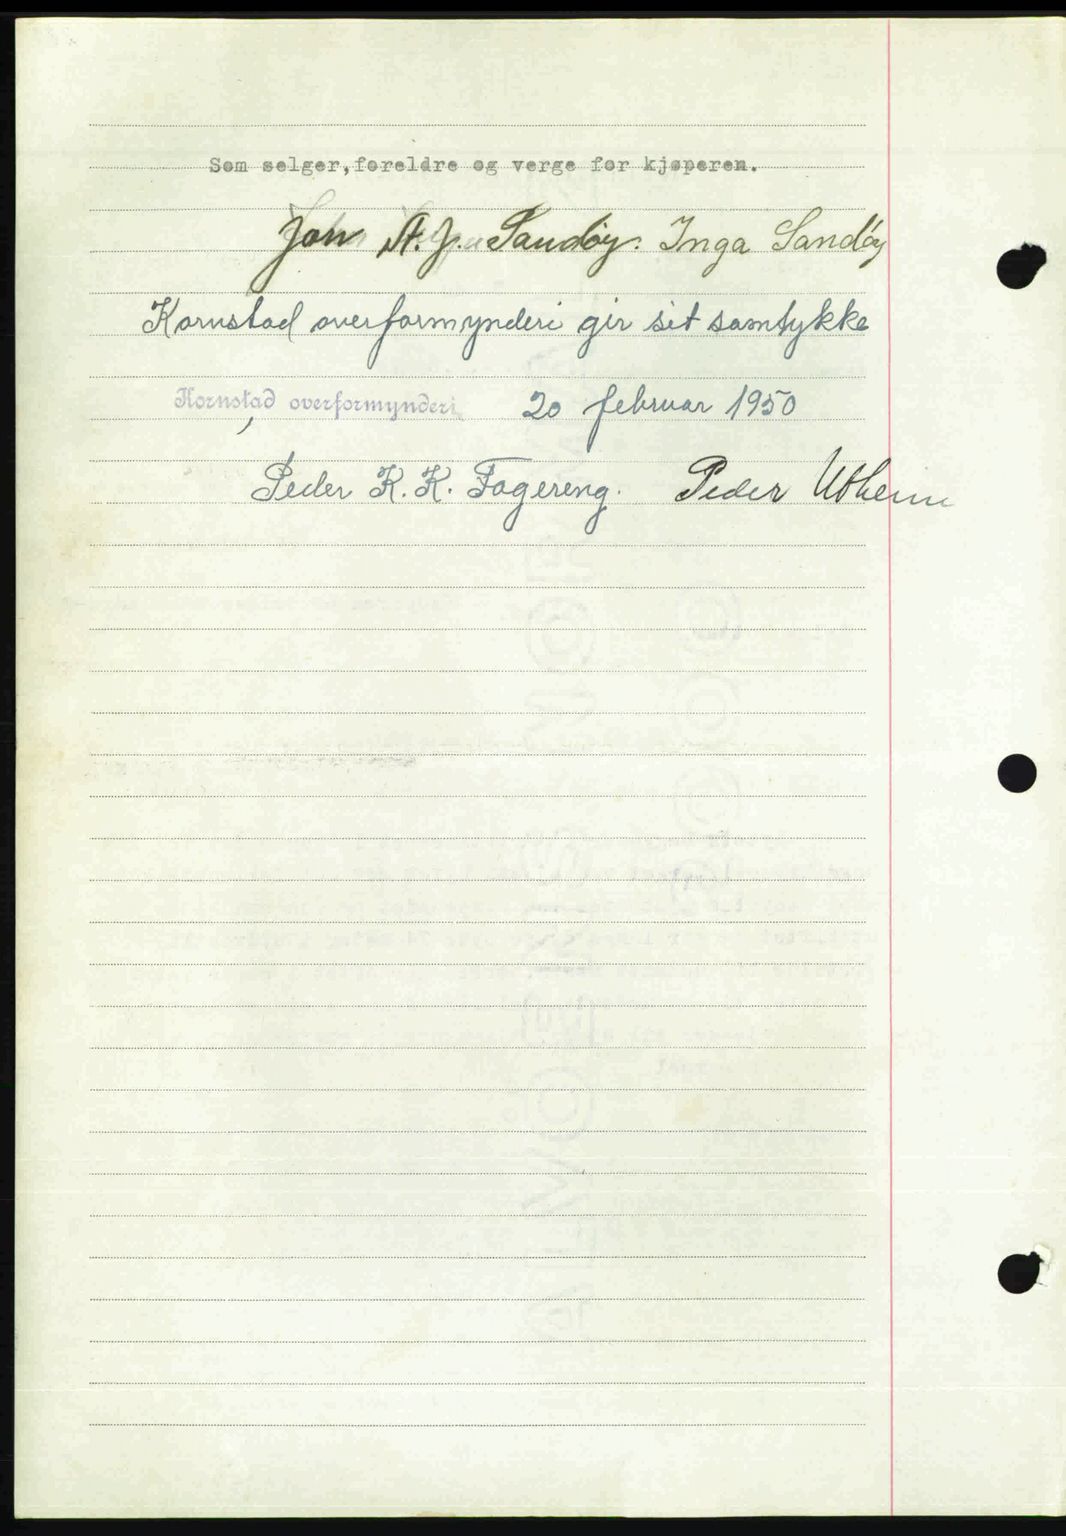 Som selger,foreldre og verge for kjøperen.
Jon A. J. Sandøy. Inga Sandøy
Kornstad overformynderi gir sit samtykke
Kornstad overformynderi 20 februar 1950
Peder K. K. Fagereng. Peder Utheim